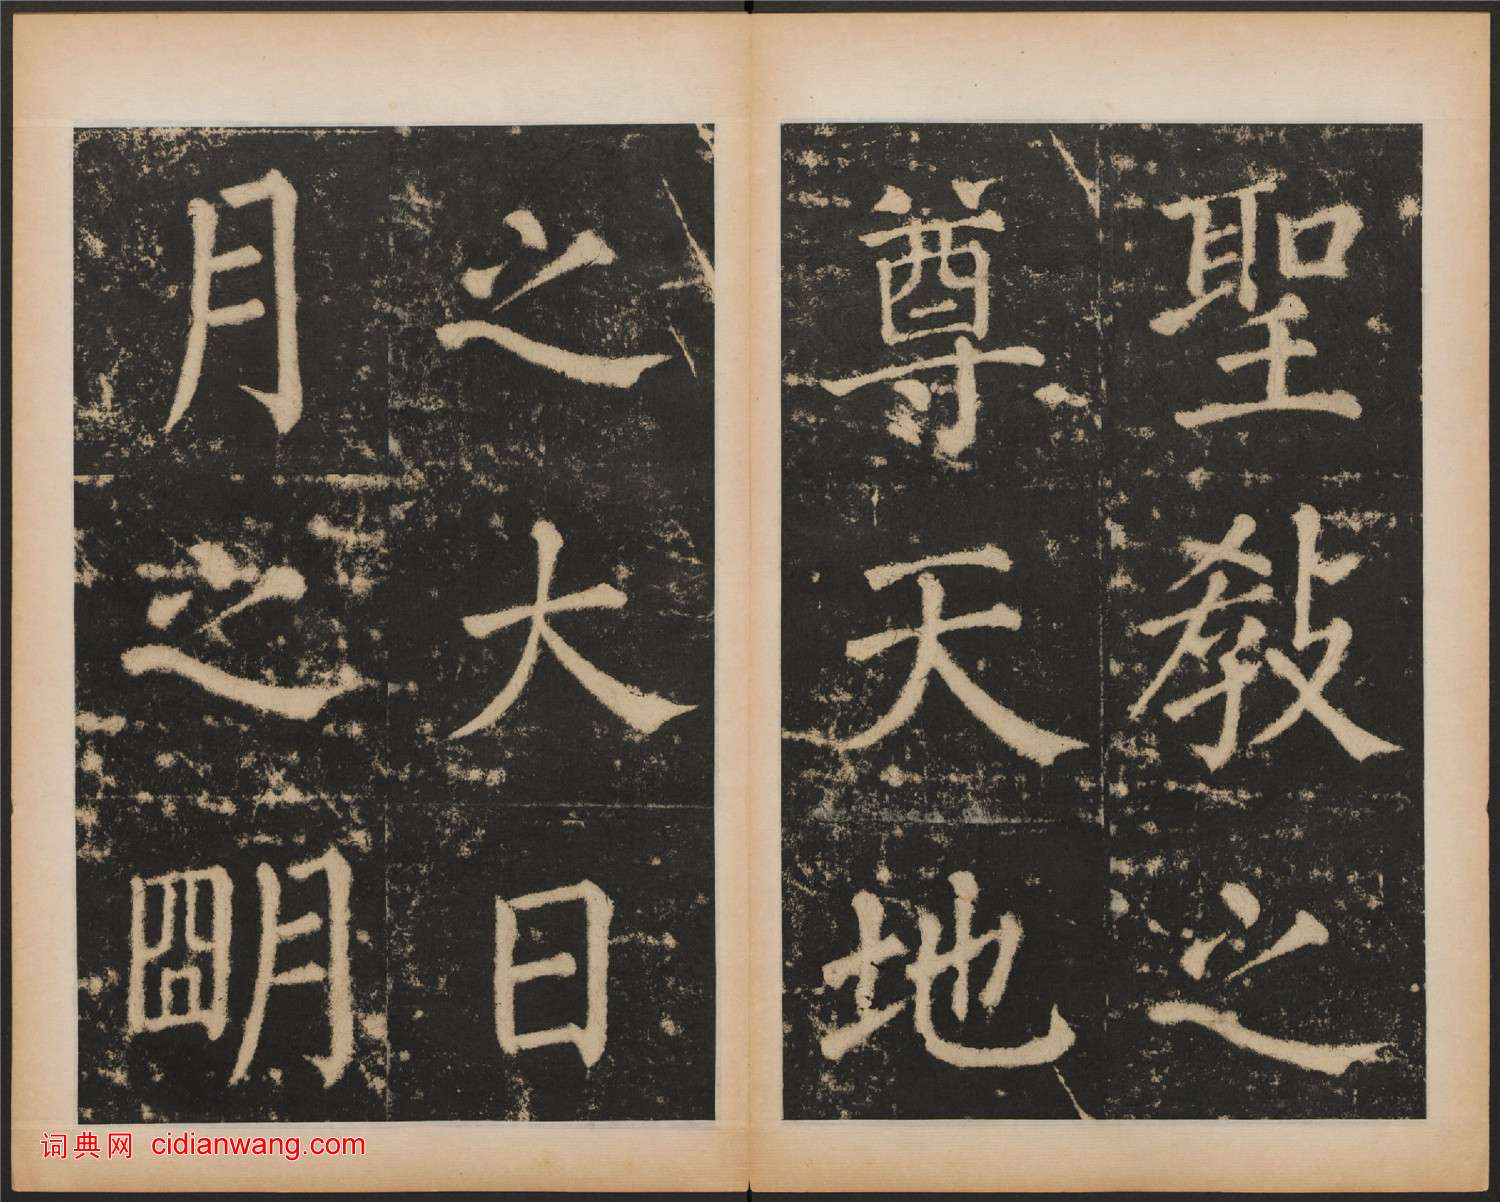 聖教之
尊天地
之大日
月之朙
词典网 cidianwang.com